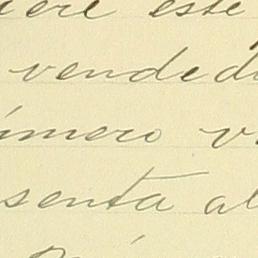 iere este
vended
úmero v
senta al